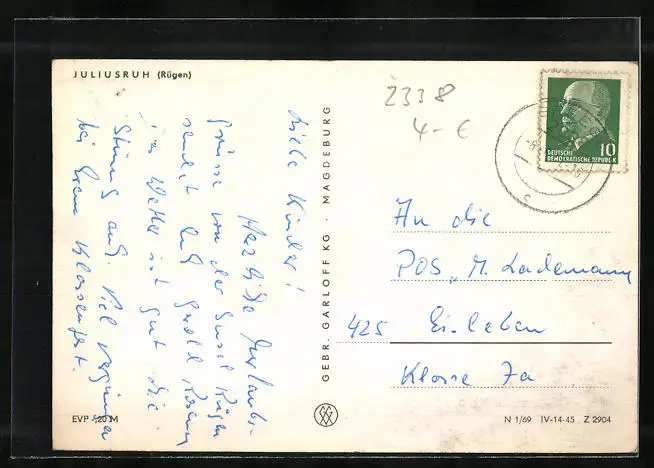 JULIUSRUH (Rügen)
Liebe Kinder!
Herzliche Urlaubs-
grüsse von der Insel Rügen
sendet Euch
Das Wetter ist gut die
Stimmung auch. Viel Vergnügen
bei Eurem Klassenfest.
GEBR. GARLOFF KG · MAGDEBURG
2338
4,- €
10
DEUTSCHE
DEMOKRATISCHE REPUBLIK
An die
POS „M. Lademann
425 Eisleben
Klasse 7a
EVP -,20 M
N 1/69 IV-14-45 Z 2904